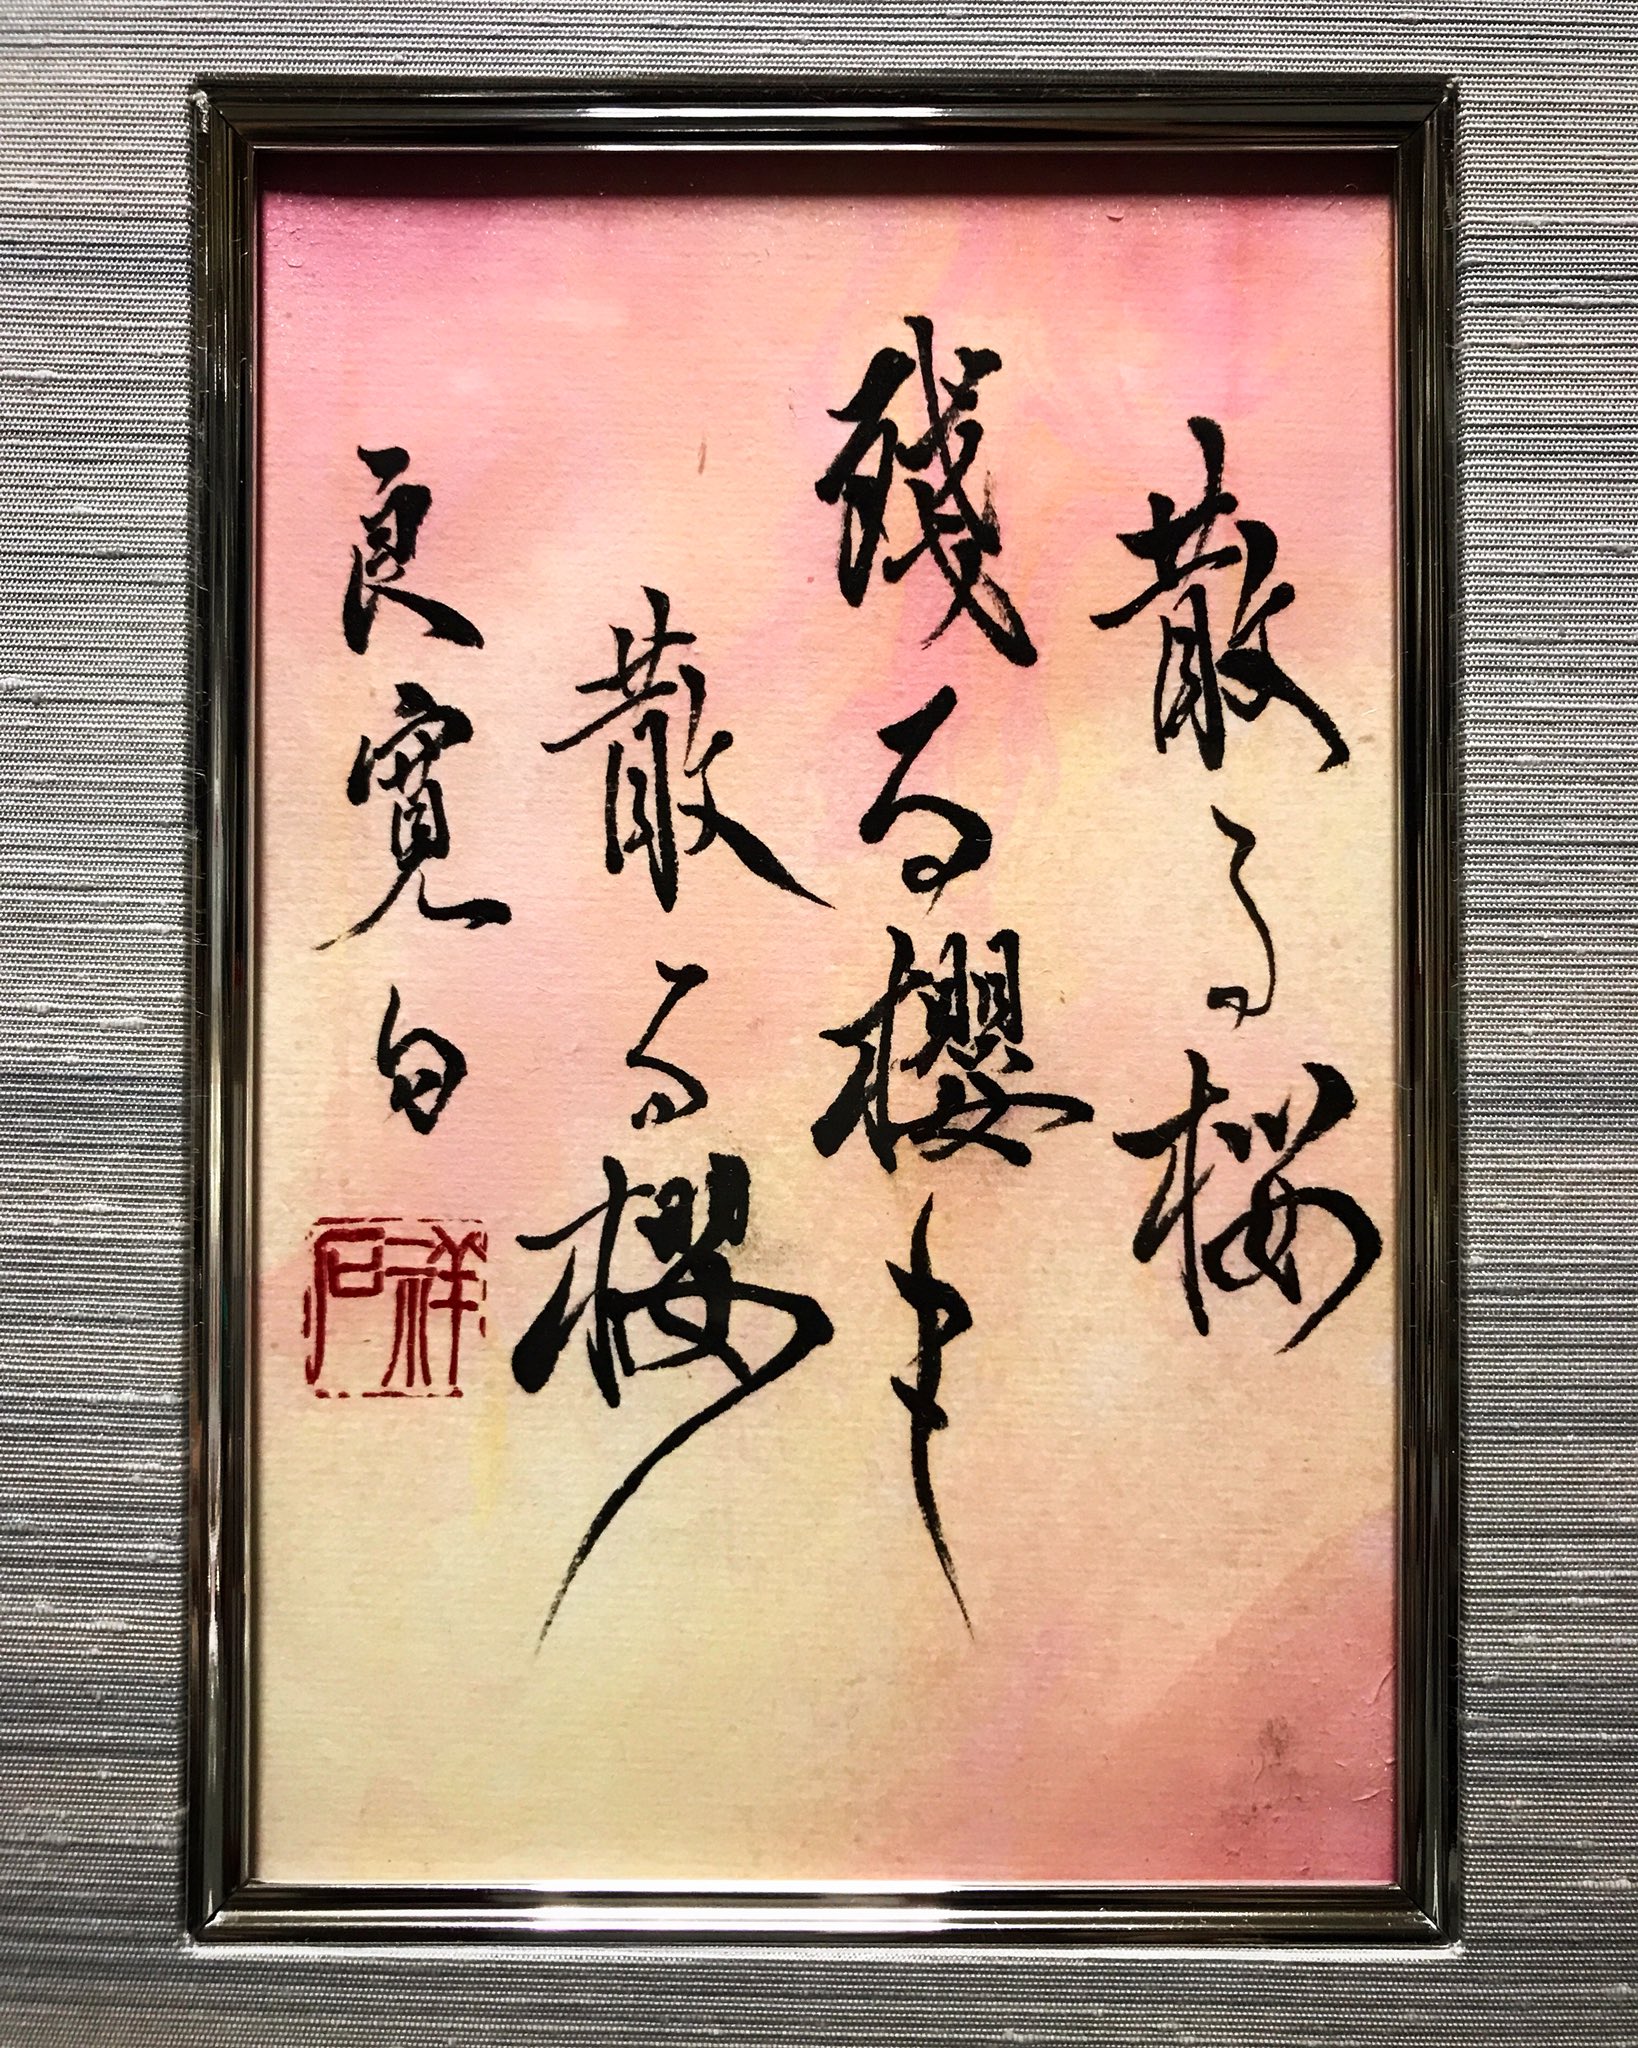 散る桜
殘る櫻も
散る櫻
良寛句
祥石